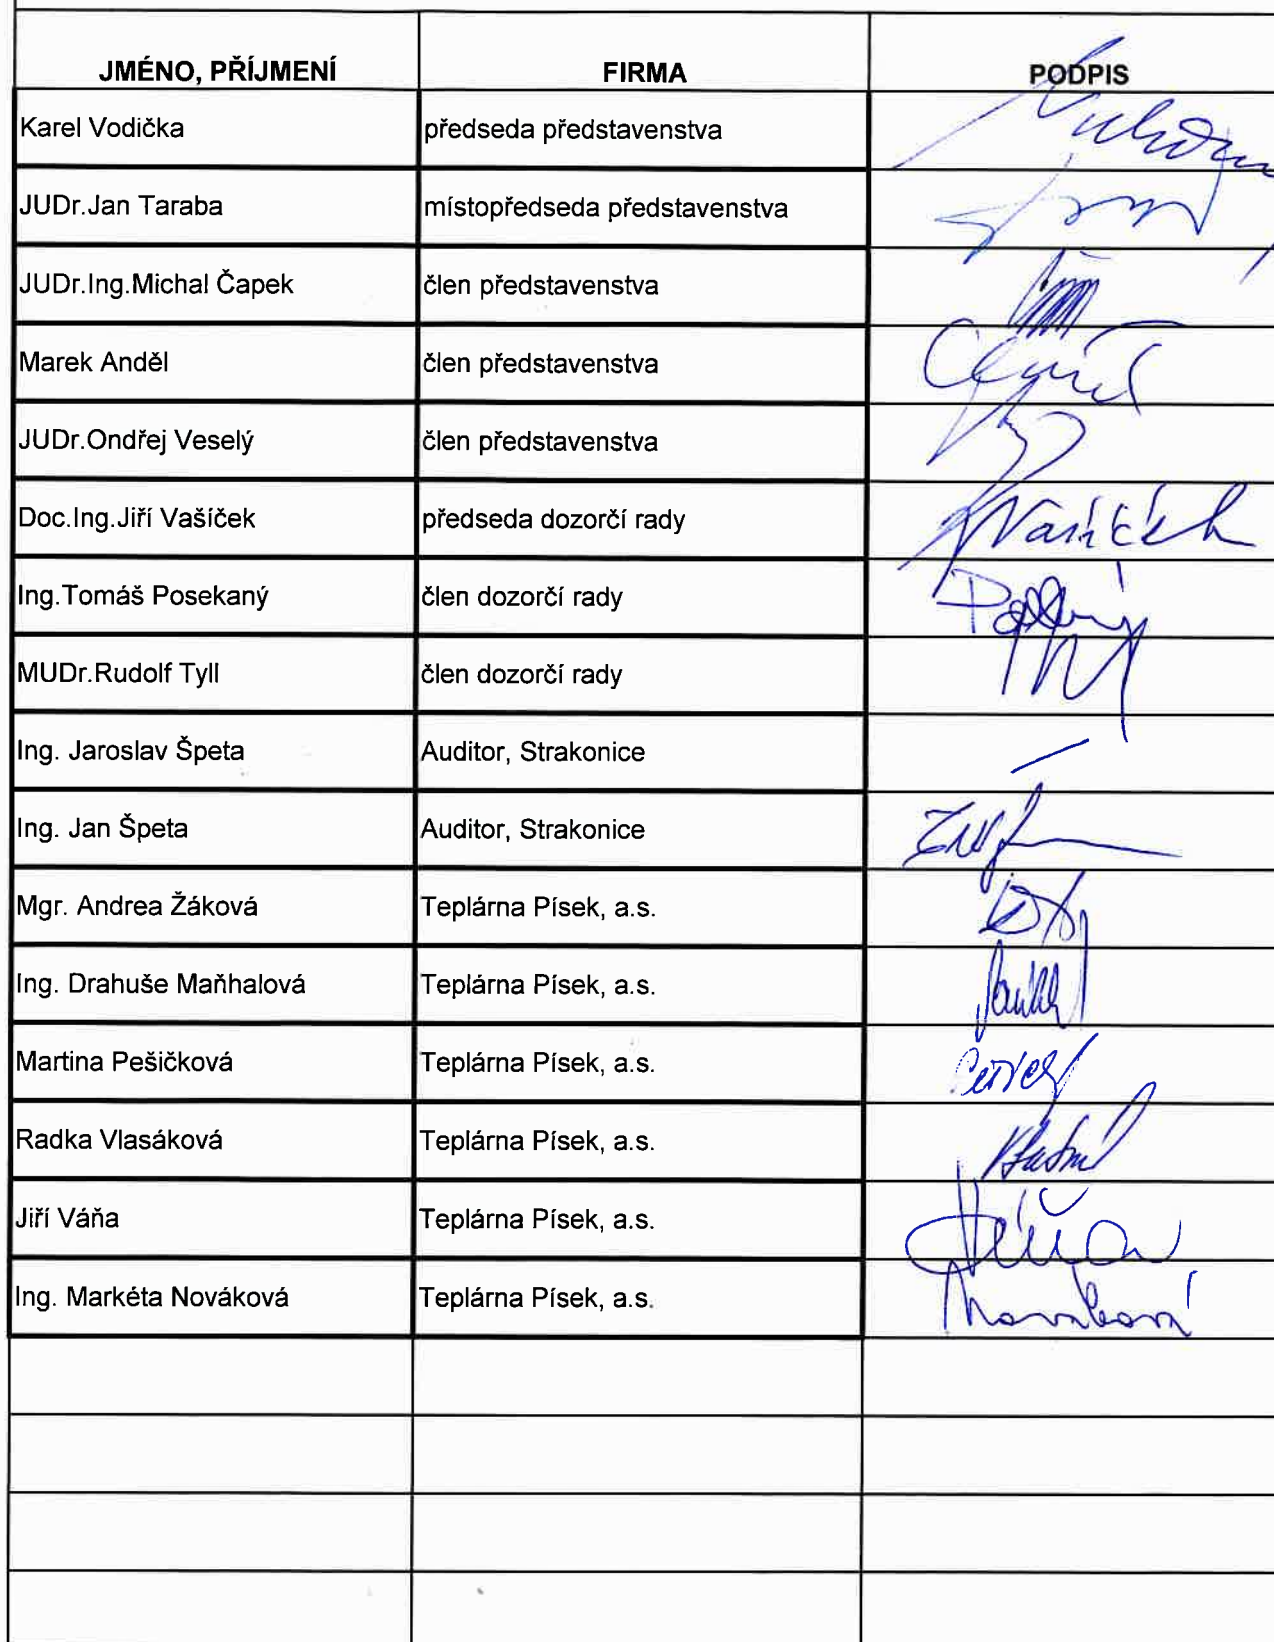 JMÉNO, PŘÍJMENÍ FIRMA PODPIS
Karel Vodička předseda představenstva
JUDr.Jan Taraba místopředseda představenstva
JUDr.Ing.Michal Čapek člen představenstva
Marek Anděl člen představenstva
JUDr.Ondřej Veselý člen představenstva
Doc.Ing.Jiří Vašíček předseda dozorčí rady
Ing.Tomáš Posekaný člen dozorčí rady
MUDr.Rudolf Tyll člen dozorčí rady
Ing. Jaroslav Špeta Auditor, Strakonice
Ing. Jan Špeta Auditor, Strakonice
Mgr. Andrea Žáková Teplárna Písek, a.s.
Ing. Drahuše Maňhalová Teplárna Písek, a.s.
Martina Pešičková Teplárna Písek, a.s.
Radka Vlasáková Teplárna Písek, a.s.
Jiří Váňa Teplárna Písek, a.s.
Ing. Markéta Nováková Teplárna Písek, a.s.